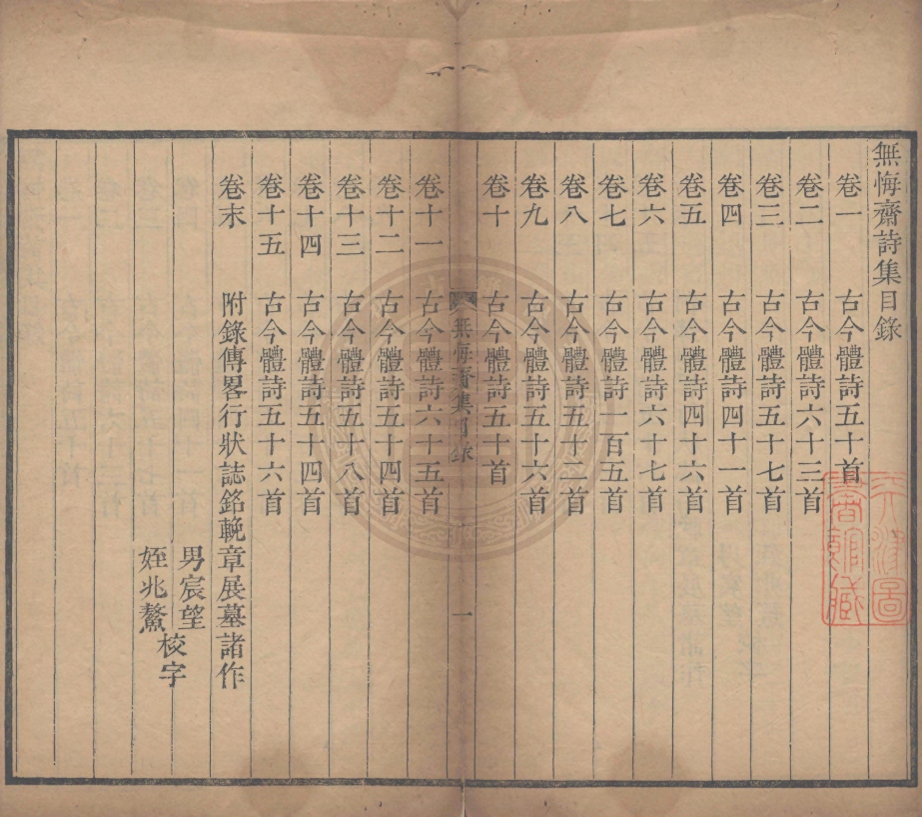 無悔齋詩集目錄
卷一 古今體詩五十首
卷二 古今體詩六十三首
卷三 古今體詩五十七首
卷四 古今體詩四十一首
卷五 古今體詩四十六首
卷六 古今體詩六十七首
卷七 古今體詩一百五首
卷八 古今體詩五十二首
卷九 古今體詩五十六首
卷十 古今體詩五十首
無悔齋集目錄 一
卷十一 古今體詩六十五首
卷十二 古今體詩五十四首
卷十三 古今體詩五十八首
卷十四 古今體詩五十四首
卷十五 古今體詩五十六首
卷末 附錄傳畧行狀誌銘輓章展墓諸作
男宸望
姪兆鰲
校字
天津圖
書館藏